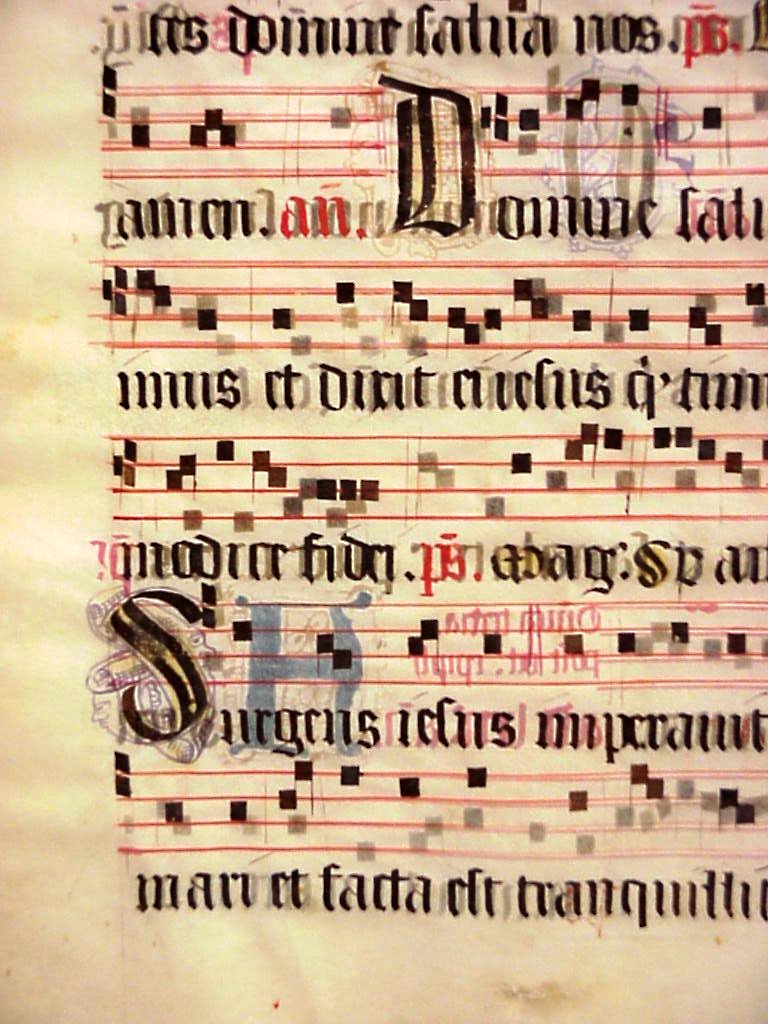 tes domine salua nos. ps.
amen. añ. Domine salu
imus et dixit ei iesus q' timi
modice fidei. ps. Mag. Sv au
Surgens iesus imperauit
mari et facta est tranquillit